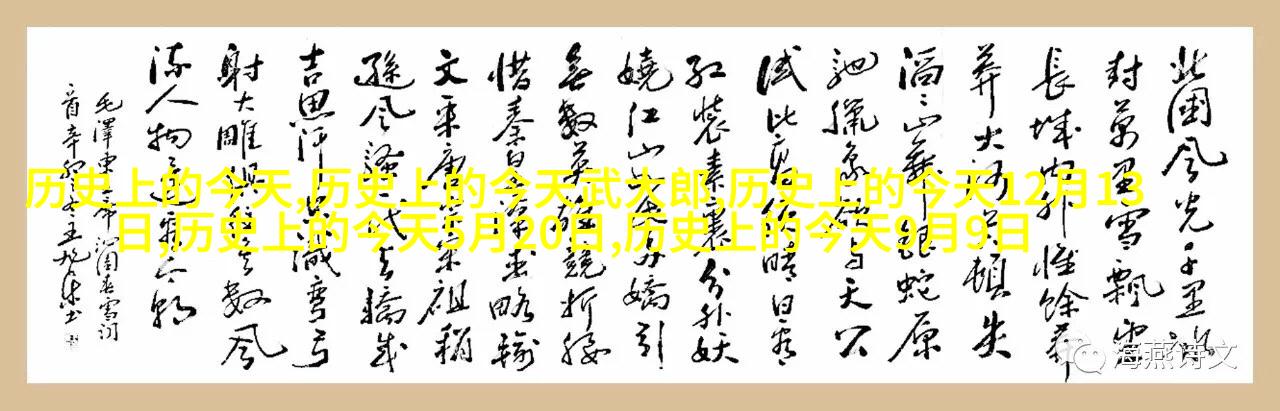 北國风光千里冰
封萬里雪飄望
長城内外惟餘莽
莽大河上下頓失
滔滔山舞銀蛇原
馳臘象欲与天公
试比高须晴日看
红裝素裹分外妖
嬈江山如此多嬌引
無數英雄競折腰
惜秦皇漢武略輸
文采唐宗宋祖稍
遜风騷一代天驕成
吉思汗只識彎弓
射大雕俱往矣數风
流人物還看今朝
毛澤東 沁園春雪词
首辛卯冬王 书
历史上的今天,历史上的今天武大郎,历史上的今天12月13
日,历史上的今天5月20日,历史上的今天9月9日
海燕诗文